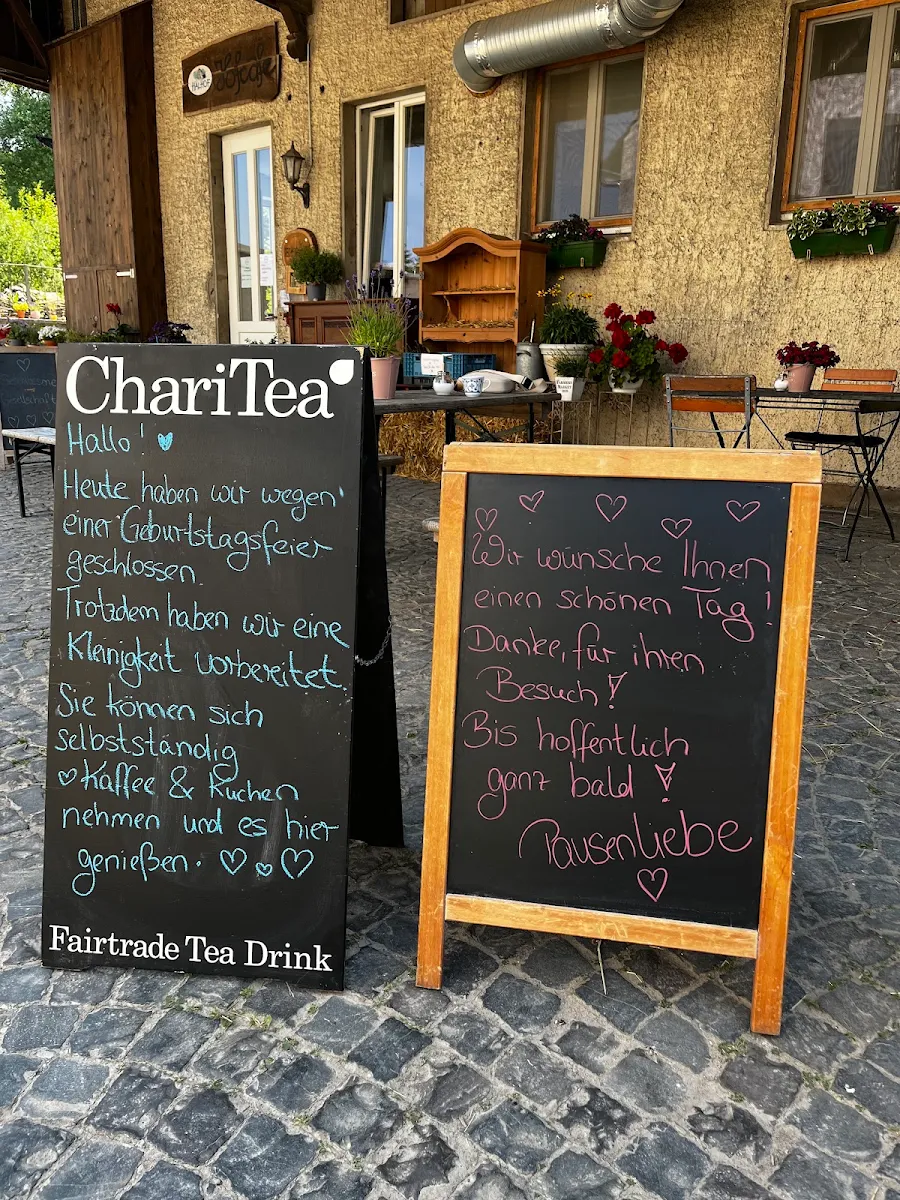 ChariTea
Hallo!
Heute haben wir wegen
einer Geburtstagsfeier
geschlossen.
Trotzdem haben wir eine
Kleinigkeit vorbereitet.
Sie können sich
selbstständig
Kaffee & Kuchen
nehmen und es hier
genießen.
Fairtrade Tea Drink
Wir wünsche Ihnen
einen schönen Tag!
Danke, für ihren
Besuch!
Bis hoffentlich
ganz bald!
Pausenliebe